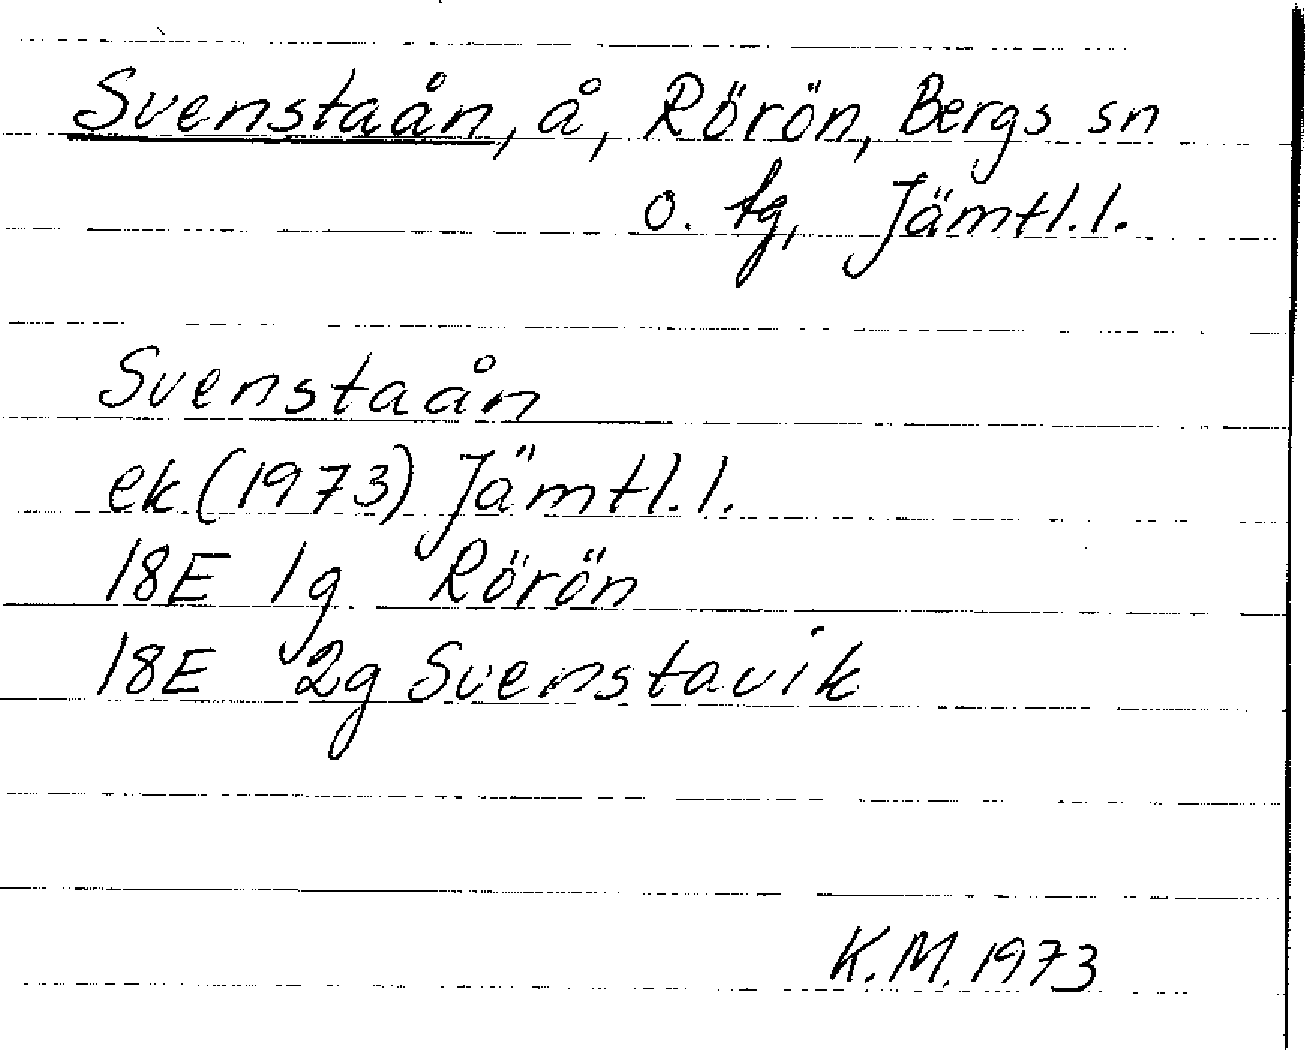 Svenstaån, å, Rörön, Bergs sn
o. tg, Jämtl.l.
Svenstaån
ek (1973) Jämtl.l.
18E 1g Rörön
18E 2g Svenstavik
K.M. 1973